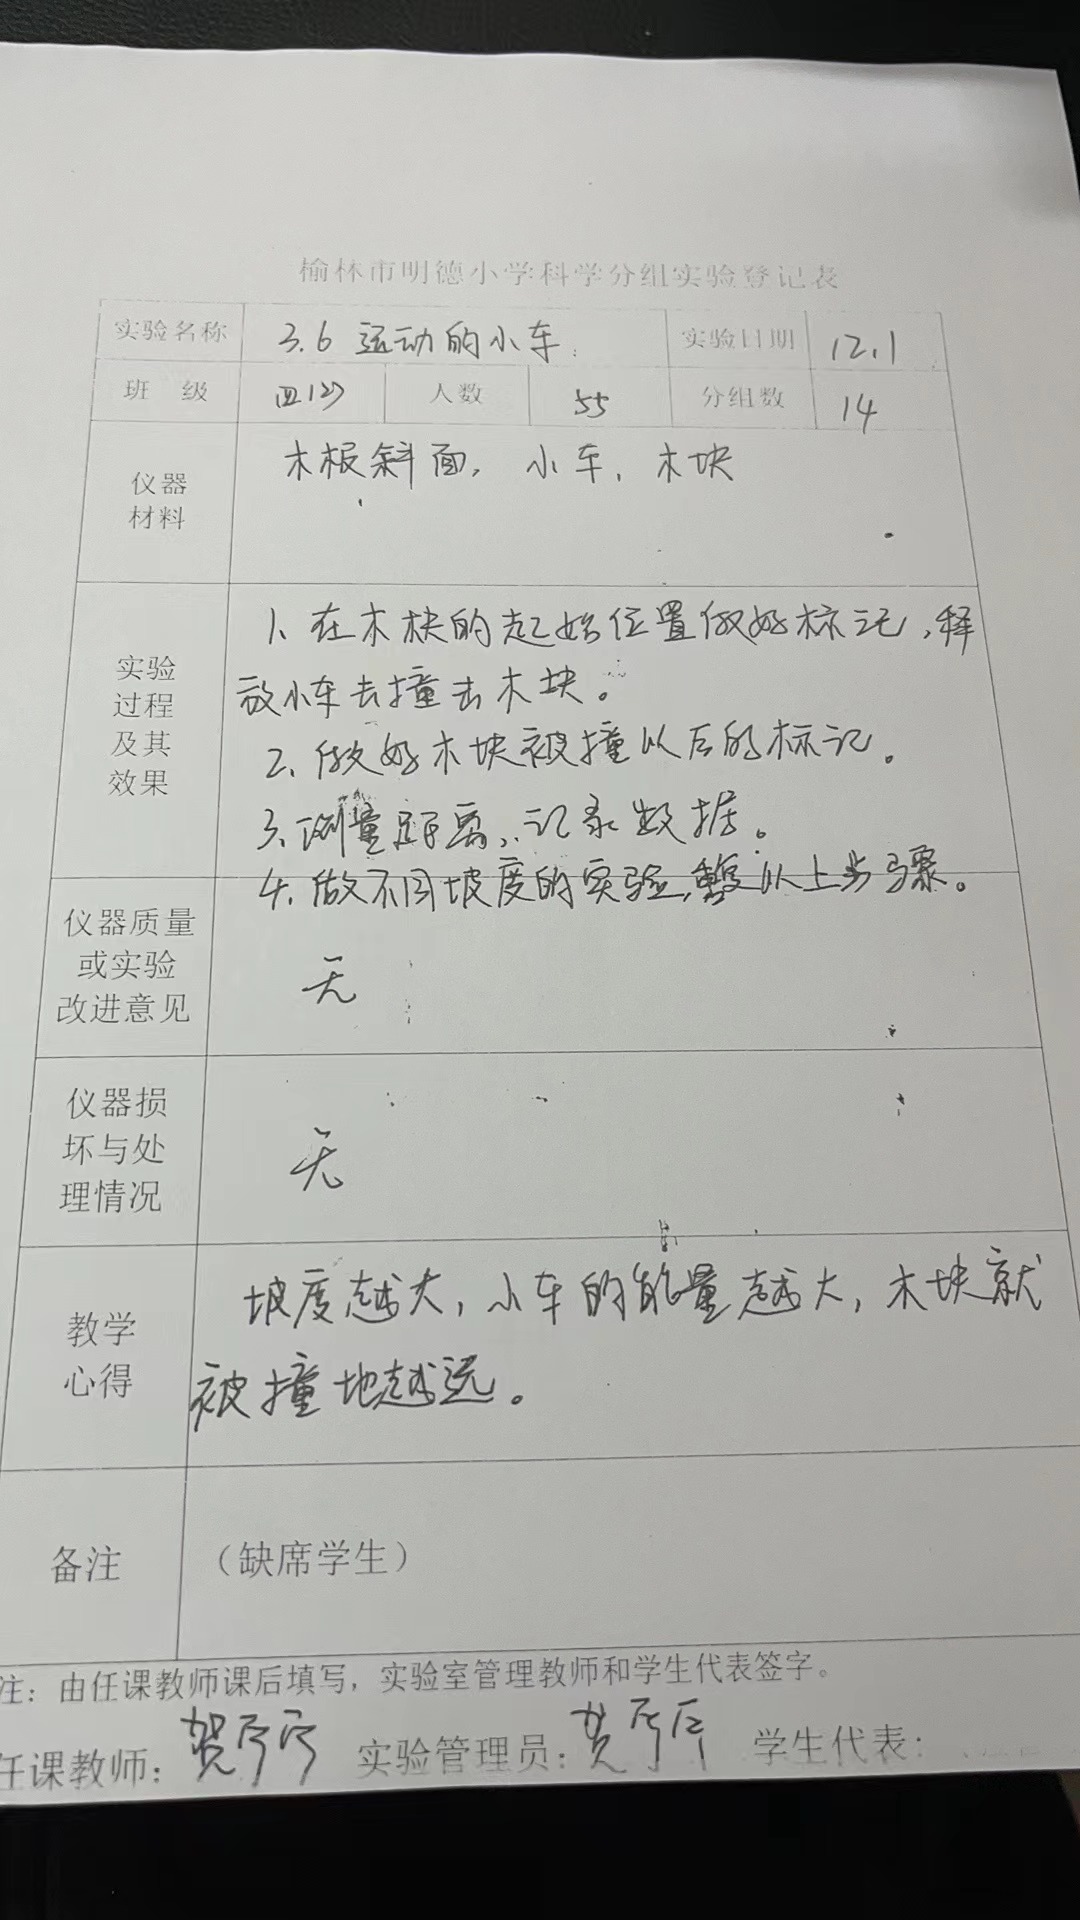 榆林市明德小学科学分组实验登记表
实验名称 3.6 运动的小车 实验日期 12.1
班 级 四(2) 人数 55 分组数 14
仪器 木板斜面, 小车, 木块
材料
实验 1、在木块的起始位置做好标记,释
过程 放小车去撞击木块。
及其 2、做好木块被撞以后的标记。
效果 3、测量距离、记录数据。
4、做不同坡度的实验,重复以上步骤。
仪器质量
或实验 无
改进意见
仪器损
坏与处 无
理情况
教学 坡度越大,小车的能量越大,木块就
心得 被撞地越远。
备注 (缺席学生)
注:由任课教师课后填写,实验室管理教师和学生代表签字。
任课教师: 贺 实验管理员: 贺 学生代表: